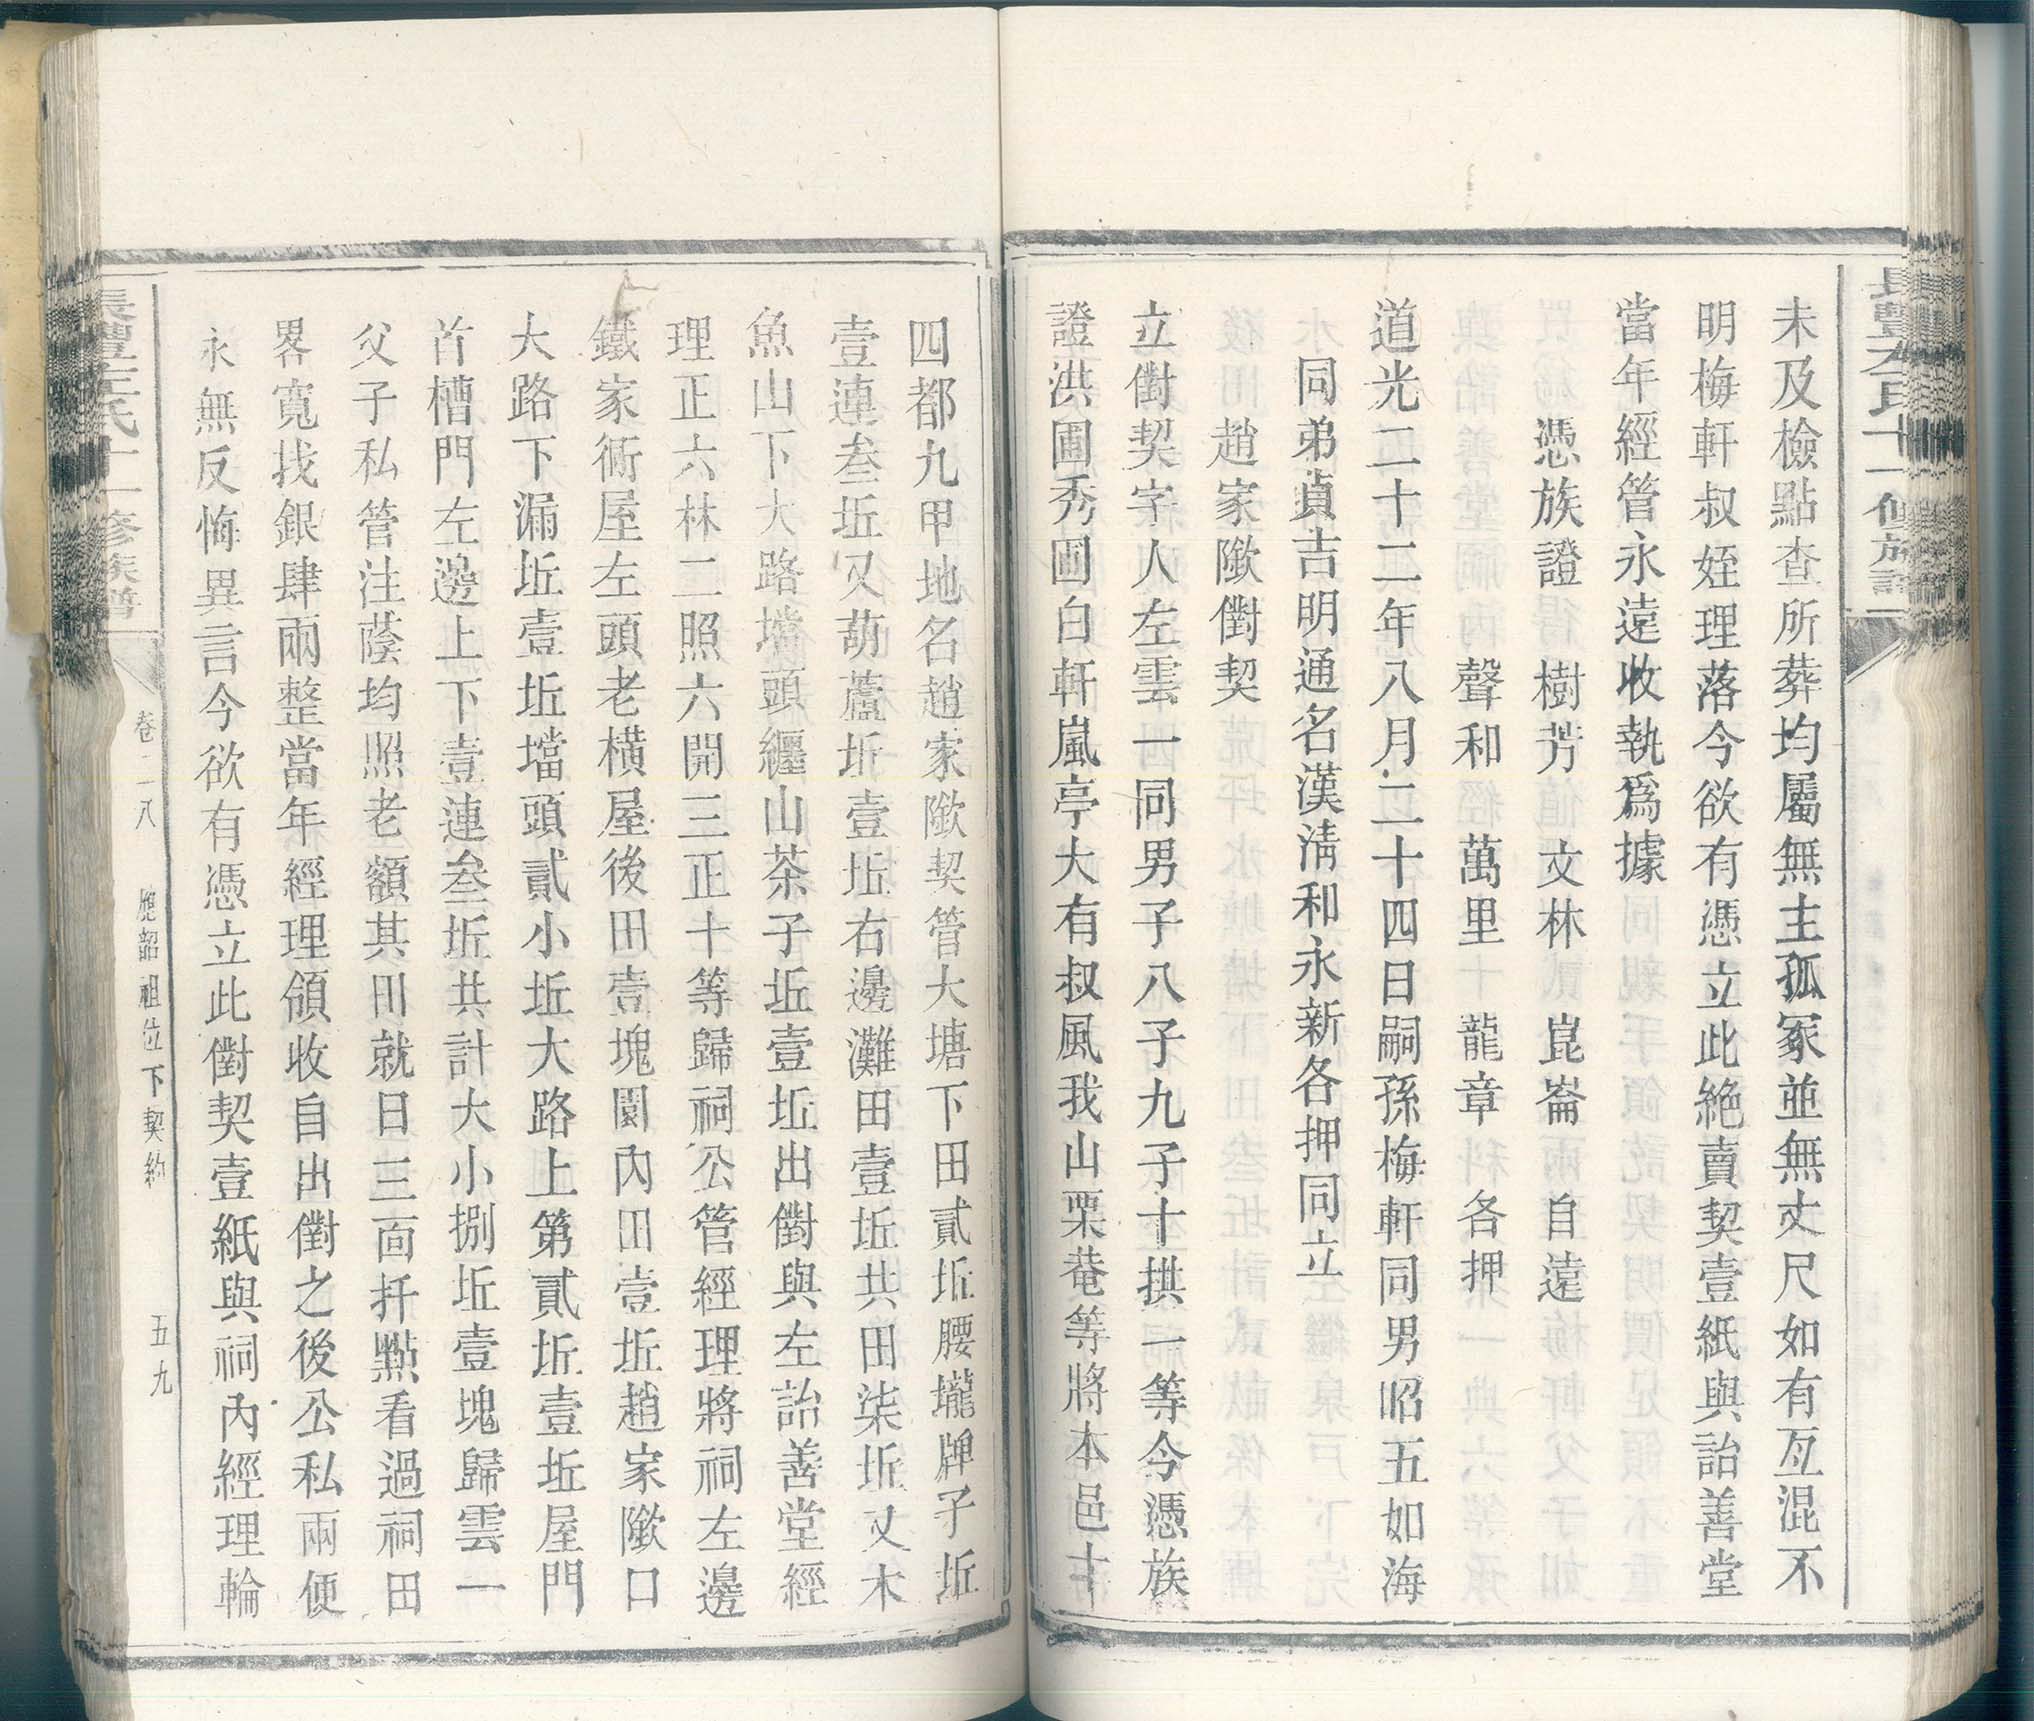 未及檢點查所葬均屬無主孤冢並無丈尺如有互混不
明梅軒叔姪理落今欲有憑立此絶賣契壹紙與詒善堂
當年經管永遠收執爲據
憑族證 樹芳 文林 崑崙 自遠
聲和 萬里 龍章 各押
道光二十二年八月二十四日嗣孫梅軒同男昭五如海
同弟貞吉明通名漢淸和永新各押同立
趙家隞對契
立對契字人左雲一同男子八子九子十拱一等今憑族
證洪圃秀圃白軒嵐亭大有叔風我山栗菴等將本邑十
四都九甲地名趙家隞契管大塘下田貳坵腰壠牌子坵
壹連叁坵又葫蘆坵壹坵右邊灘田壹坵共田柒坵又木
魚山下大路壋頭纏山茶子坵壹坵出對與左詒善堂經
理正六林二照六開三正十等歸祠公管經理將祠左邊
鐵家衕屋左頭老橫屋後田壹塊園內田壹坵趙家隞口
大路下漏坵壹坵壋頭貳小坵大路上第貳坵壹坵屋門
首槽門左邊上下壹連叁坵共計大小捌坵壹塊歸雲一
父子私管注蔭均照老額其田就日三面扦點看過祠田
畧寬找銀肆兩整當年經理領收自出對之後公私兩便
永無反悔異言今欲有憑立此對契壹紙與祠內經理輪
長澧左氏十一修族譜
卷二八
應韶祖位下契約
五九